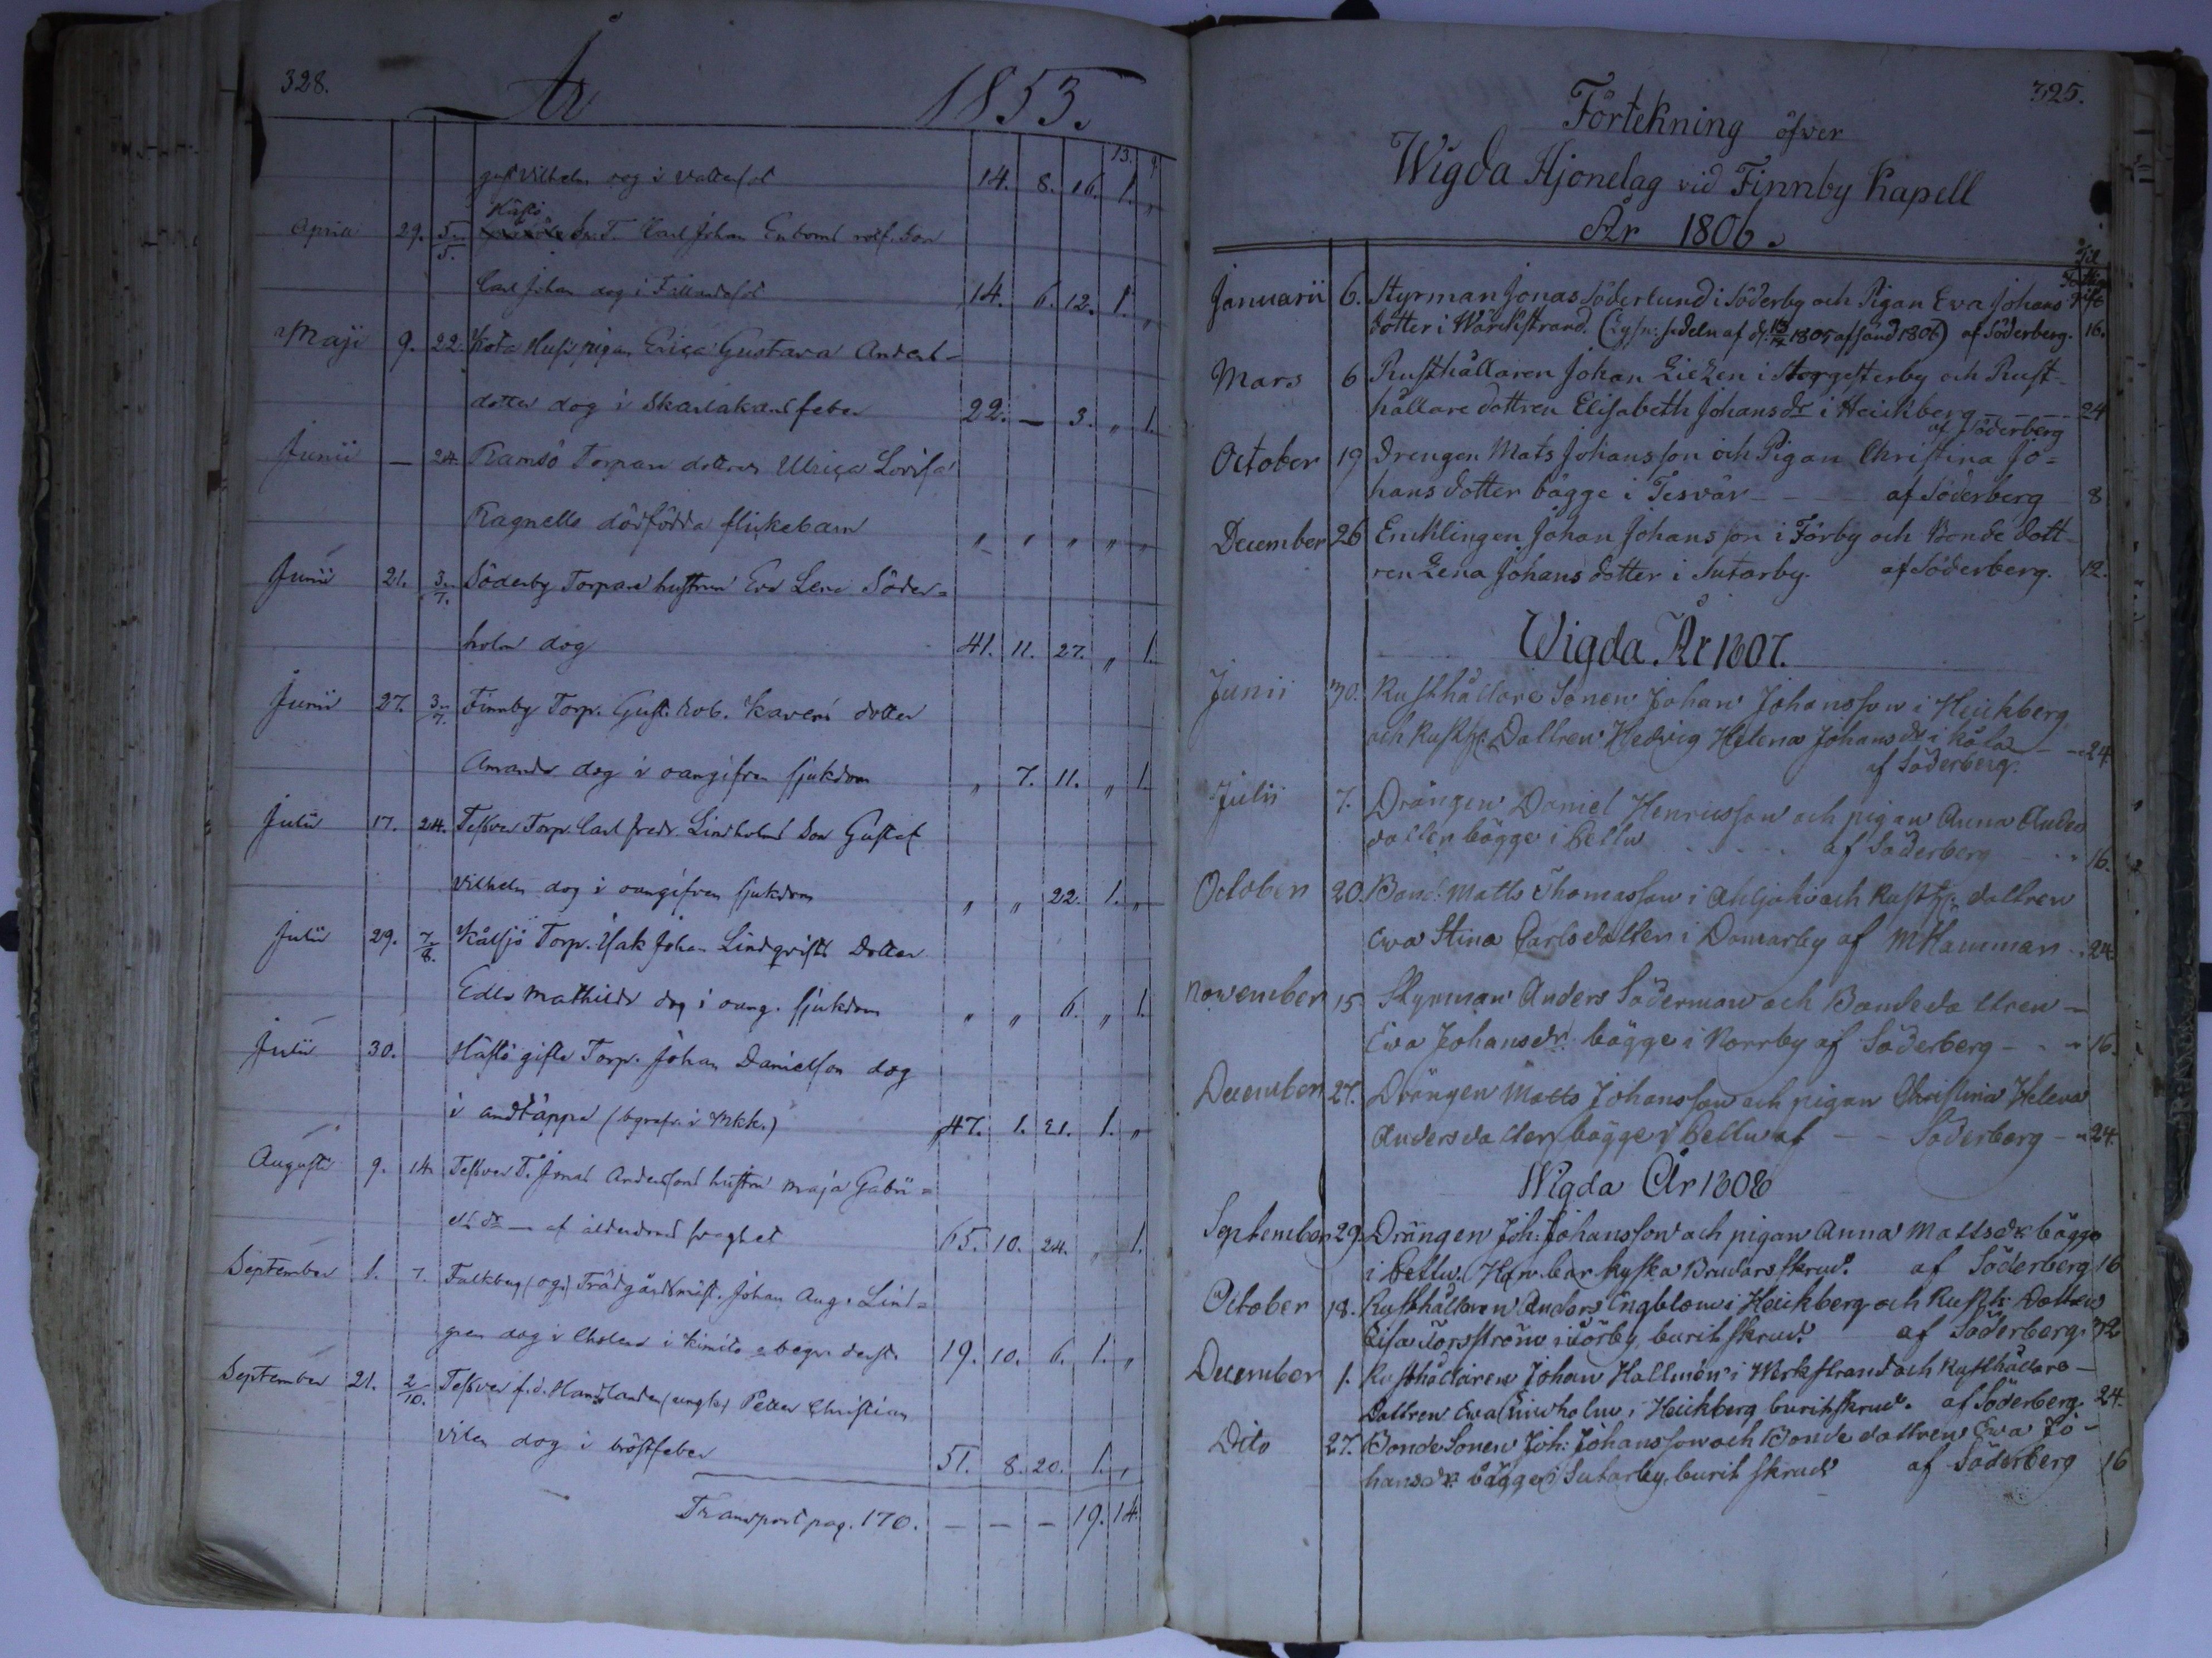 328.
År 1853.
13. 9
Vilhelm dog i vattusot 14. 8. 16. 1. „
Häftö
April 29. 5/5. Carl Johan Enboms son
Carl Johan dog i 14. 6. 12. 1. „
Maji 9. 22. Kota pigan Erica Gustava Anders-
dotter dog i Skarlakansfeber 22. — 3. „ 1.
Junii — 24. Ramsö Torpare dottren Ulrica Lovisa
Ragnells dödfödda flickebarn „ „ „ „ „
Junii 21. 3/7. Söderby Torpare hustrun Eva Lena Söder=
holm dog 41. 11. 27. „ 1.
Junii 27. 3/7. Finnby Torp. Gust. Rob. dotter
Amanda dog i oangifven sjukdom „ 7. 11. „ 1.
Julii 17. 24. Teßver Torp. Carl Fredr. Lindholms Son Gustaf
Vilhelm dog i oangifven sjukdom „ „ 22. 1. „
Julii 29. 7/8. Kålsjö Torp. Isak Johan Lindqvists Dotter
Edla Mathilda dog i oang. sjukdom „ „ 6. „ 1.
Julii 30. Häftö gifte Torp. Johan Danielson dog
i andtäppa (begrafv. i Mkk.) 47. 1. 21. 1. „
Augusti 9. 14. Teßver T. Jonas Andersons hustru Maja Gabri=
els dr — af ålderdoms svaghet 65. 10. 24. „ 1.
September 1. 7. Falkberg (ogi) Trädgårdsmäst. Johan Aug. Lind=
gren dog i Cholera i Kimito o begr. derst. 19. 10. 6. 1. „
September 21. 2/10. Teßver f.d. Handlanden (ungk.) Petter Christian
Vilen dog i bröstfeber 51. 8. 20. 1. „
Transport pag. 170. — — — 19. 14.
325.
Förtekning öfver
Wigda Hjonelag vid Finnby Kapell
År 1806.
Til Fattige gift
Januarii 6. Styrman Jonas Söderlund i Söderby och Pigan Eva Johans
dotter i Wärckstrand. (Lysn: sedeln af d. 1805 afsänd 1806) af Söderberg. 16.
Mars 6 Rusthållaren Johan Liezen i Storgesterby och Rust-
hållare dottren Elisabeth Johansdr i Heickberg - - - - 24
af Söderberg
October 19 Drengen Mats Johansson och Pigan Christina Jo=
hans dotter bägge i Tesvär - - - af Söderberg 8
December 26 Encklingen Johan Johansson i Förby och Bonde dott-
ren Lena Johans dotter i Sutarby. af Söderberg. 12.
Wigda År 1807.
Junii 30. Rusthållare Sonen Johan Johansson i Heickberg
och Rusth. Dottren Hedvig Helena Johansdr i Kåla - - 24.
af Söderberg.
Julii 7. Drängen Daniel Henricsson och pigan Anna Anders
dotter bägge i Pettu - - - - af Söderberg - - 16.
October 20. Bond. Matts Thomasson i Ahljoki och Rusth. dottren
Ewa Stina Carlsdotter i Domarby af M Hamman - - 24.
November 15. Styrman Anders Söderman och Bondedottren -
Ewa Johansdr bägge i Norrby af Söderberg - - 16.
December 27. Drängen Matts Johansson och pigan Christina Helena
Andersdotter bägge i Pettu af - - Söderberg - - 24.
Wigda År 1808
September 29. Drängen Joh: Johansson och pigan Anna Mattsdr bägge
i Pettu. Hon bar Ryska Brudarsskrud. af Söderberg 16
October 18. Rusthållaren Anders Engblom i Heickberg och Rusth: Dottren
Lisa Förström i Förby, burit skrud. af Söderberg. 32
December 1. Rusthållaren Johan Hallmén i Werkstrand och Rusthållare-
Dottren Ewa Lindholm i Heickberg burit skrud. af Söderberg. 24.
Dito 27. Bonde Sonen Joh: Johansson och Bonde dottren Ewa Jo-
hansdr. bägge i Sutarby, burit skrud af Söderberg 16